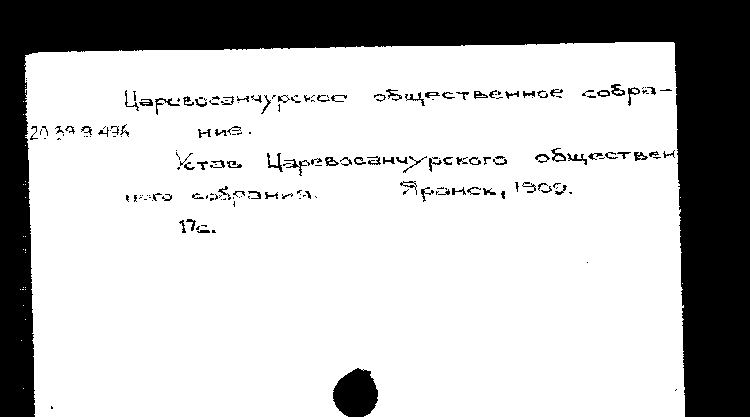 Царевосанчурское общественное собра-
20.39.9.496 ние.
Устав Царевосанчурского обществен
ного собрания. Яранск, 1909.
17с.